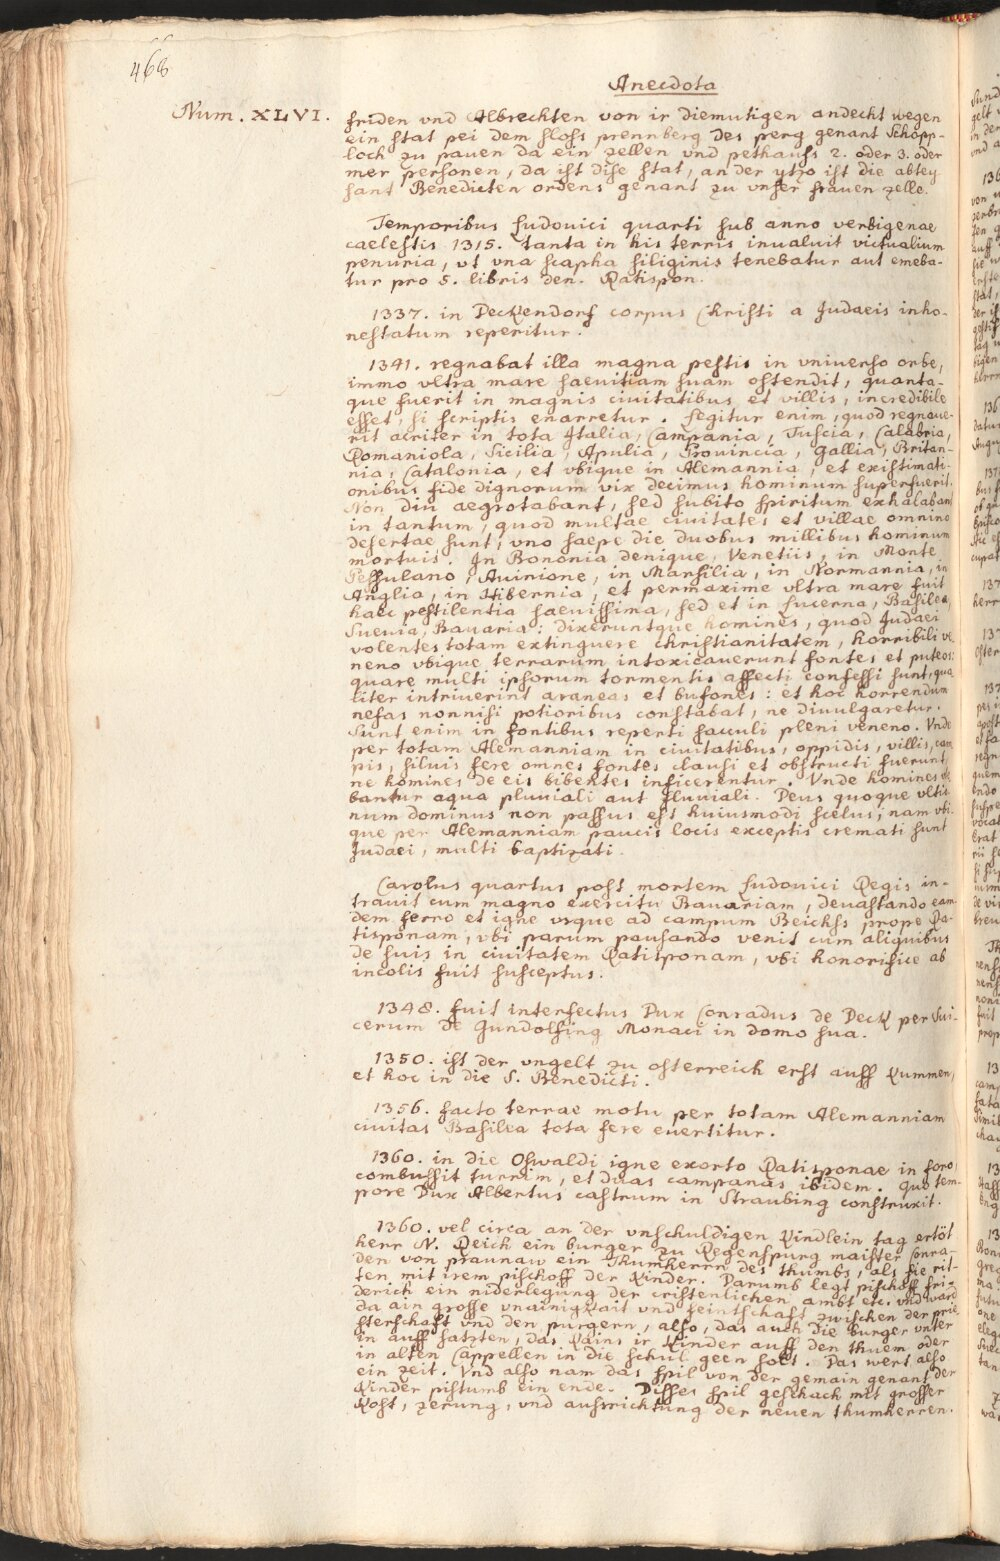 468
Anecdota
Num. XLVI.
friden vnd Albrechten von ir diemutigen andecht wegen
ein stat pei dem sloss prennberg des perg genant Schopp-
loch zu pauen da ein zellen vnd pethauss 2. oder 3. oder
mer personen, da ist dise stat, an der ytzo ist die abtey
sant Benedicten ordens genant zu vnser frauen zelle.
Temporibus Ludouici quarti sub anno verbigenae
caelestis 1315. tanta in his terris inualuit victualium
penuria, vt vna scapha siliginis tenebatur aut emeba-
tur pro 5. libris den. Ratispon.
1337. in Deckendorf corpus Christi a Judaeis inho-
nestatum reperitur.
1341. regnabat illa magna pestis in vniuerso orbe,
immo vltra mare saeuitiam suam ostendit, quanta-
que fuerit in magnis ciuitatibus et villis, incredibile
esset, si scriptis enarretur. Legitur enim, quod regnaue-
rit acriter in tota Italia, Campania, Tuscia, Calabria,
Romaniola, Sicilia, Apulia, Prouincia, Gallia, Britan-
nia, Catalonia, et vbique in Alemannia, et existimati-
onibus fide dignorum vix decimus hominum superfuerit.
Non diu aegrotabant, sed subito spiritum exhalabant
in tantum, quod multae ciuitates et villae omnino
desertae sunt, vno saepe die duobus millibus hominum
mortuis. In Bononia denique, Venetiis, in Monte
Pessulano, Auinione, in Marsilia, in Normannia, in
Anglia, in Hibernia, et permaxime vltra mare fuit
haec pestilentia saeuissima, sed et in Lucerna, Basilea,
Sueuia, Bauaria: dixeruntque homines, quod Judaei
volentes totam extinguere christianitatem, horribili ve-
neno vbique terrarum intoxicauerunt fontes et puteos:
quare multi ipsorum tormentis affecti confessi sunt, qua
liter intriuerint araneas et bufones: et hoc horrendum
nefas nonnisi potioribus constabat, ne diuulgaretur.
Sunt enim in fontibus reperti sacculi pleni veneno. Vnde
per totam Alemanniam in ciuitatibus, oppidis, villis, cam
pis, siluis fere omnes fontes clausi et obstructi fuerunt,
ne homines de eis bibentes inficerentur. Vnde homines vte
bantur aqua pluuiali aut fluuiali. Deus quoque vltio
num dominus non passus est huiusmodi scelus; nam vbi-
que per Alemanniam paucis locis exceptis cremati sunt
Judaei, multi baptizati.
Carolus quartus post mortem Ludouici Regis in-
trauit cum magno exercitu Bauariam, deuastando eam-
dem ferro et igne vsque ad campum Beichss prope Ra-
tisponam, vbi parum pausando venit cum aliquibus
de suis in ciuitatem Ratisponam, vbi honorifice ab
incolis fuit susceptus.
1348. fuit interfectus Dux Conradus de Deck per Sui-
cerum de Gundolfing Monaci in domo sua.
1350. ist der vngelt zu osterreich erst auff kummen,
et hoc in die S. Benedicti.
1356. facto terrae motu per totam Alemanniam
ciuitas Basilea tota fere euertitur.
1360. in die Oswaldi igne exorto Ratisponae in foro,
combussit turrim, et duas campanas ibidem. quo tem-
pore Dux Albertus castrum in Straubing construxit.
1360. vel circa an der vnschuldigen Kindlein tag ertöt
herr N. Reich ein burger zu Regenspurg maister Conra-
den von praunaw ein Thumherrn des thumbs, als sie rit-
ten mit irem pischoff der Kinder. Darumb legt pischoff fri-
derich ein niderlegung der cristenlichen ambt etc. vnd ward
da ain grosse vnainigkait vnd veintschaft zwischen der prie-
sterschaft vnd den purgern, also, das auch die burger vnter
in auff satzten, das kains ir kinder auff den thuem oder
in alten Cappellen in die schul geen solt. Das wert also
ein zeit. Vnd also nam das spil von der gemain genant der
Kinder pistumb ein ende. Disses spil geschach mit grosser
Kost, zerung, vnd aussrichtung der neuen thumherren.